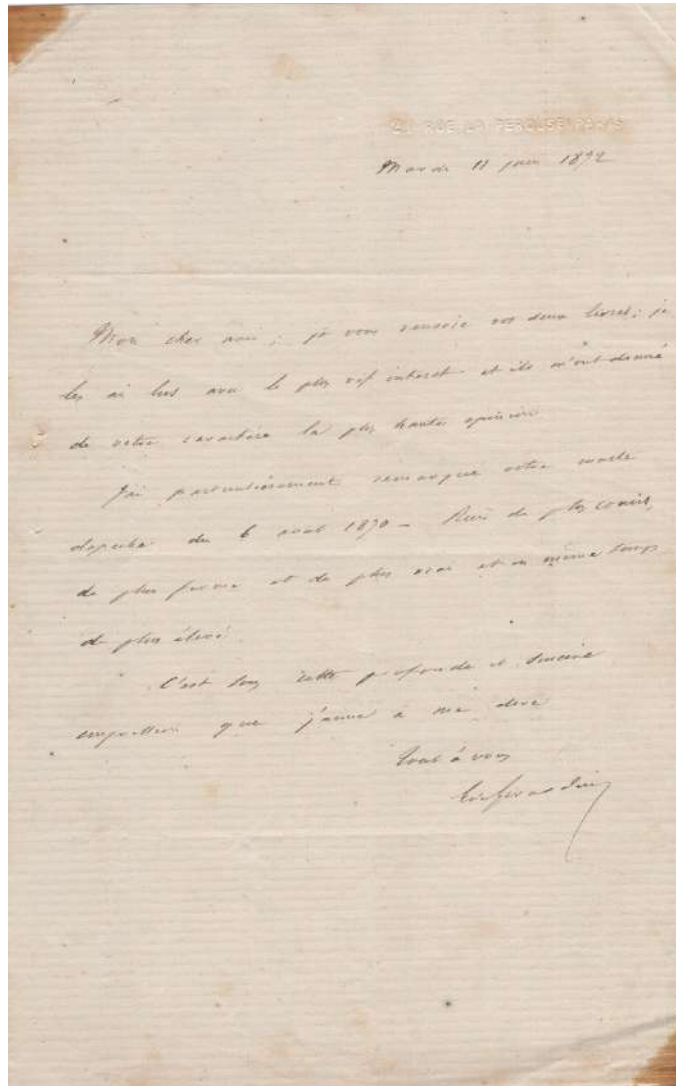 RUE LA PEROUSE PARIS
Mardi 11 juin 1872
Mon cher ami, je vous renvoie vos deux livres; je
les ai lus avec le plus vif interet et ils m'ont donné
de votre caractère la plus haute opinion
J'ai particulièrement remarqué votre
dépêche du 6 août 1870 — Rien de plus concis,
de plus ferme et de plus vrai et en même temps
de plus élevé.
C'est sous cette profonde et sincère
impression que j'aime à me dire
tout à vous